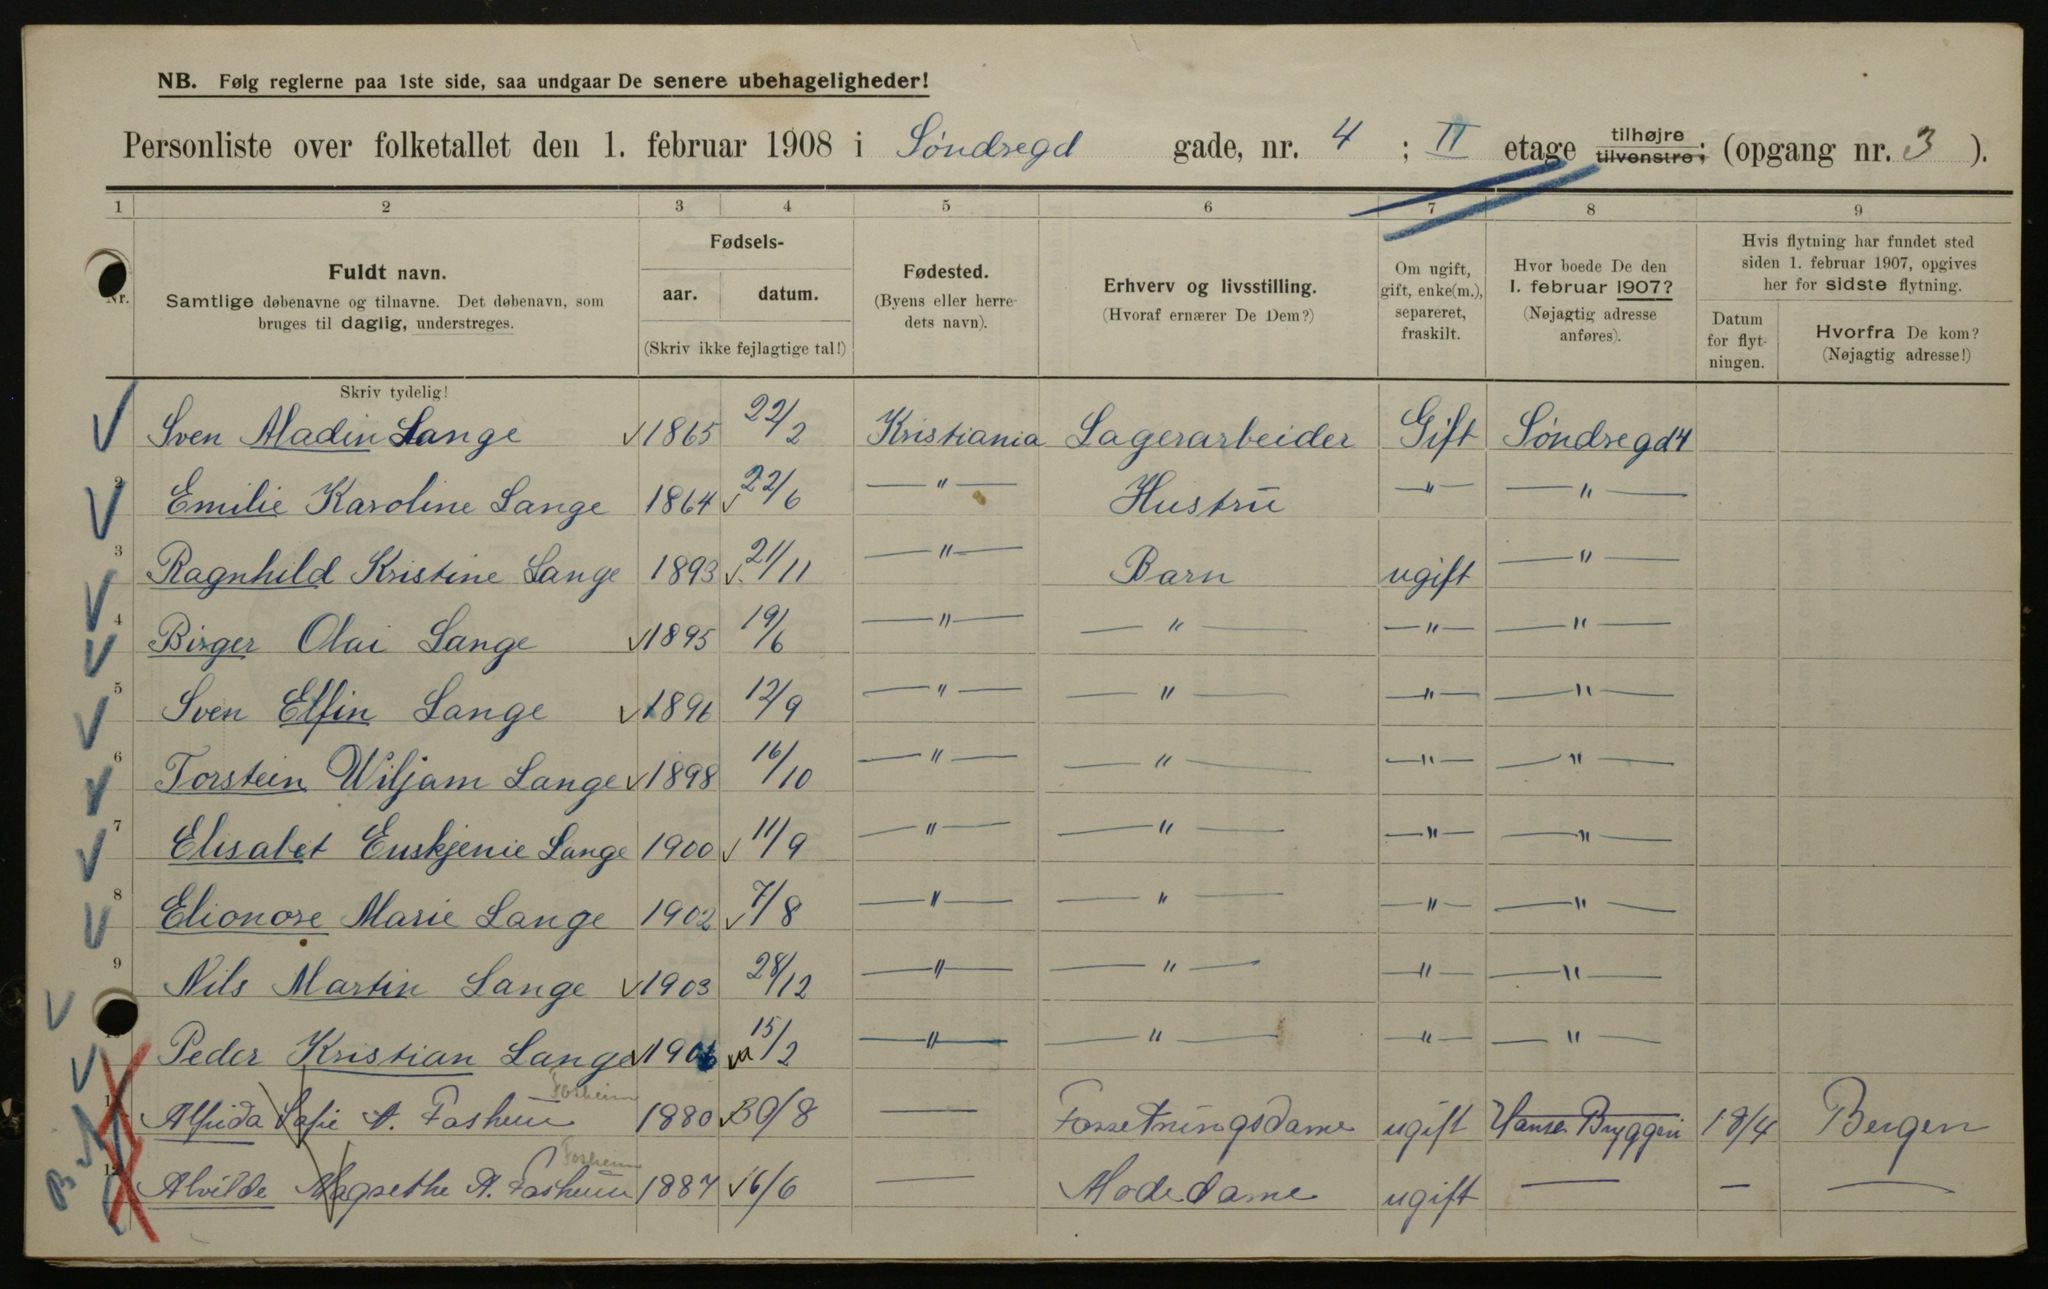 NB. Følg reglerne paa 1ste side, saa undgaar De senere ubehageligheder!
Personliste over folketallet den 1. februar 1908 i Søndregd gade, nr. 4 ; II etage tilhøjre tilvenstre; (opgang nr. 3 ).
1 2 3 4 5 6 7 8 9
Nr.
Fuldt navn.
Samtlige døbenavne og tilnavne. Det døbenavn, som
bruges til daglig, understreges.
Skriv tydelig!
Fødsels-
aar. datum.
(Skriv ikke fejlagtige tal!)
Fødested.
(Byens eller herre-
dets navn).
Erhverv og livsstilling.
(Hvoraf ernærer De Dem?)
Om ugift,
gift, enke(m.),
separeret,
fraskilt.
Hvor boede De den
1. februar 1907?
(Nøjagtig adresse
anføres).
Hvis flytning har fundet sted
siden 1. februar 1907, opgives
her for sidste flytning.
Datum
for flyt-
ningen.
Hvorfra De kom?
(Nøjagtig adresse!)
Sven Aladin Lange 1865 22/2 Kristiania Lagerarbeider Gift Søndregd 4
2 Emilie Karoline Lange 1864 22/6 —"— Hustru —"— —"—
3 Ragnhild Kristine Lange 1893 21/11 —"— Barn ugift —"—
4 Birger Olai Lange 1895 19/6 —"— —"— —"— —"—
5 Sven Elfin Lange 1896 12/9 —"— —"— —"— —"—
6 Torstein Wiljam Lange 1898 16/10 —"— —"— —"— —"—
7 Elisabet Euskjenie Lange 1900 11/9 —"— —"— —"— —"—
8 Elionore Marie Lange 1902 7/8 —"— —"— —"— —"—
9 Nils Martin Lange 1903 28/12 —"— —"— —"— —"—
10 Peder Kristian Lange 15/2 —"— —"— —"— —"—
Fosheim
11 Alfrida Sofie A. Fosheim 1880 30/8 — Forretningsdame ugift Hansa Bryggeri 18/4 Bergen
Fosheim
12 Alvilde Magrethe A. Fosheim 1887 6/6 — Modedame ugift — — —